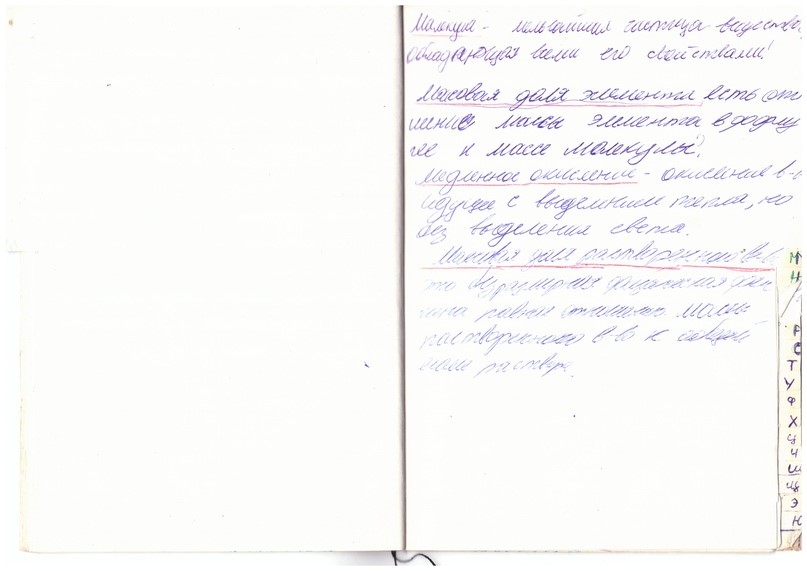 Молекула - мельчайшая частица вещества,
обладающая всеми его свойствами!
Массовая доля элемента есть отно
шение массы элемента в форму
ле к массе молекулы!
Медленное окисление - окисление в-в
идущее с выделением тепла, но
без выделения света.
Массовая доля растворенного в-ва
это безразмерная физическая вели
чина равная отношению массы
растворенного в-во к общей
массе раствора.
М
Н
Р
С
Т
У
Ф
Х
Ц
Ч
Ш
Щ
Э
Ю